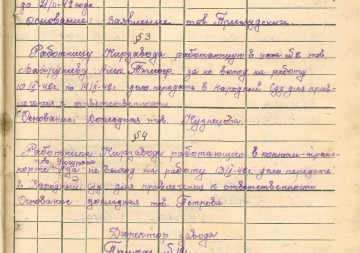 до 21/II-42 года.
Основание: Заявление тов
§ 3
Работницу Кирзавода работающую в цехе №2 тов.
за не выход на работу
10/II-42г. по 14/II-42г. дело передать в Народный Суд для прив-
лечения к ответственности
Основание: Докладная тов. Кузнецова.
§ 4
Работника Кирзавода работающего в конном транс-
порте тов. за не выход на работу 13/II-42г. дело передать
в Народный суд для привлечения к ответственности
Основание докладная тов. Петрова
Директор завода